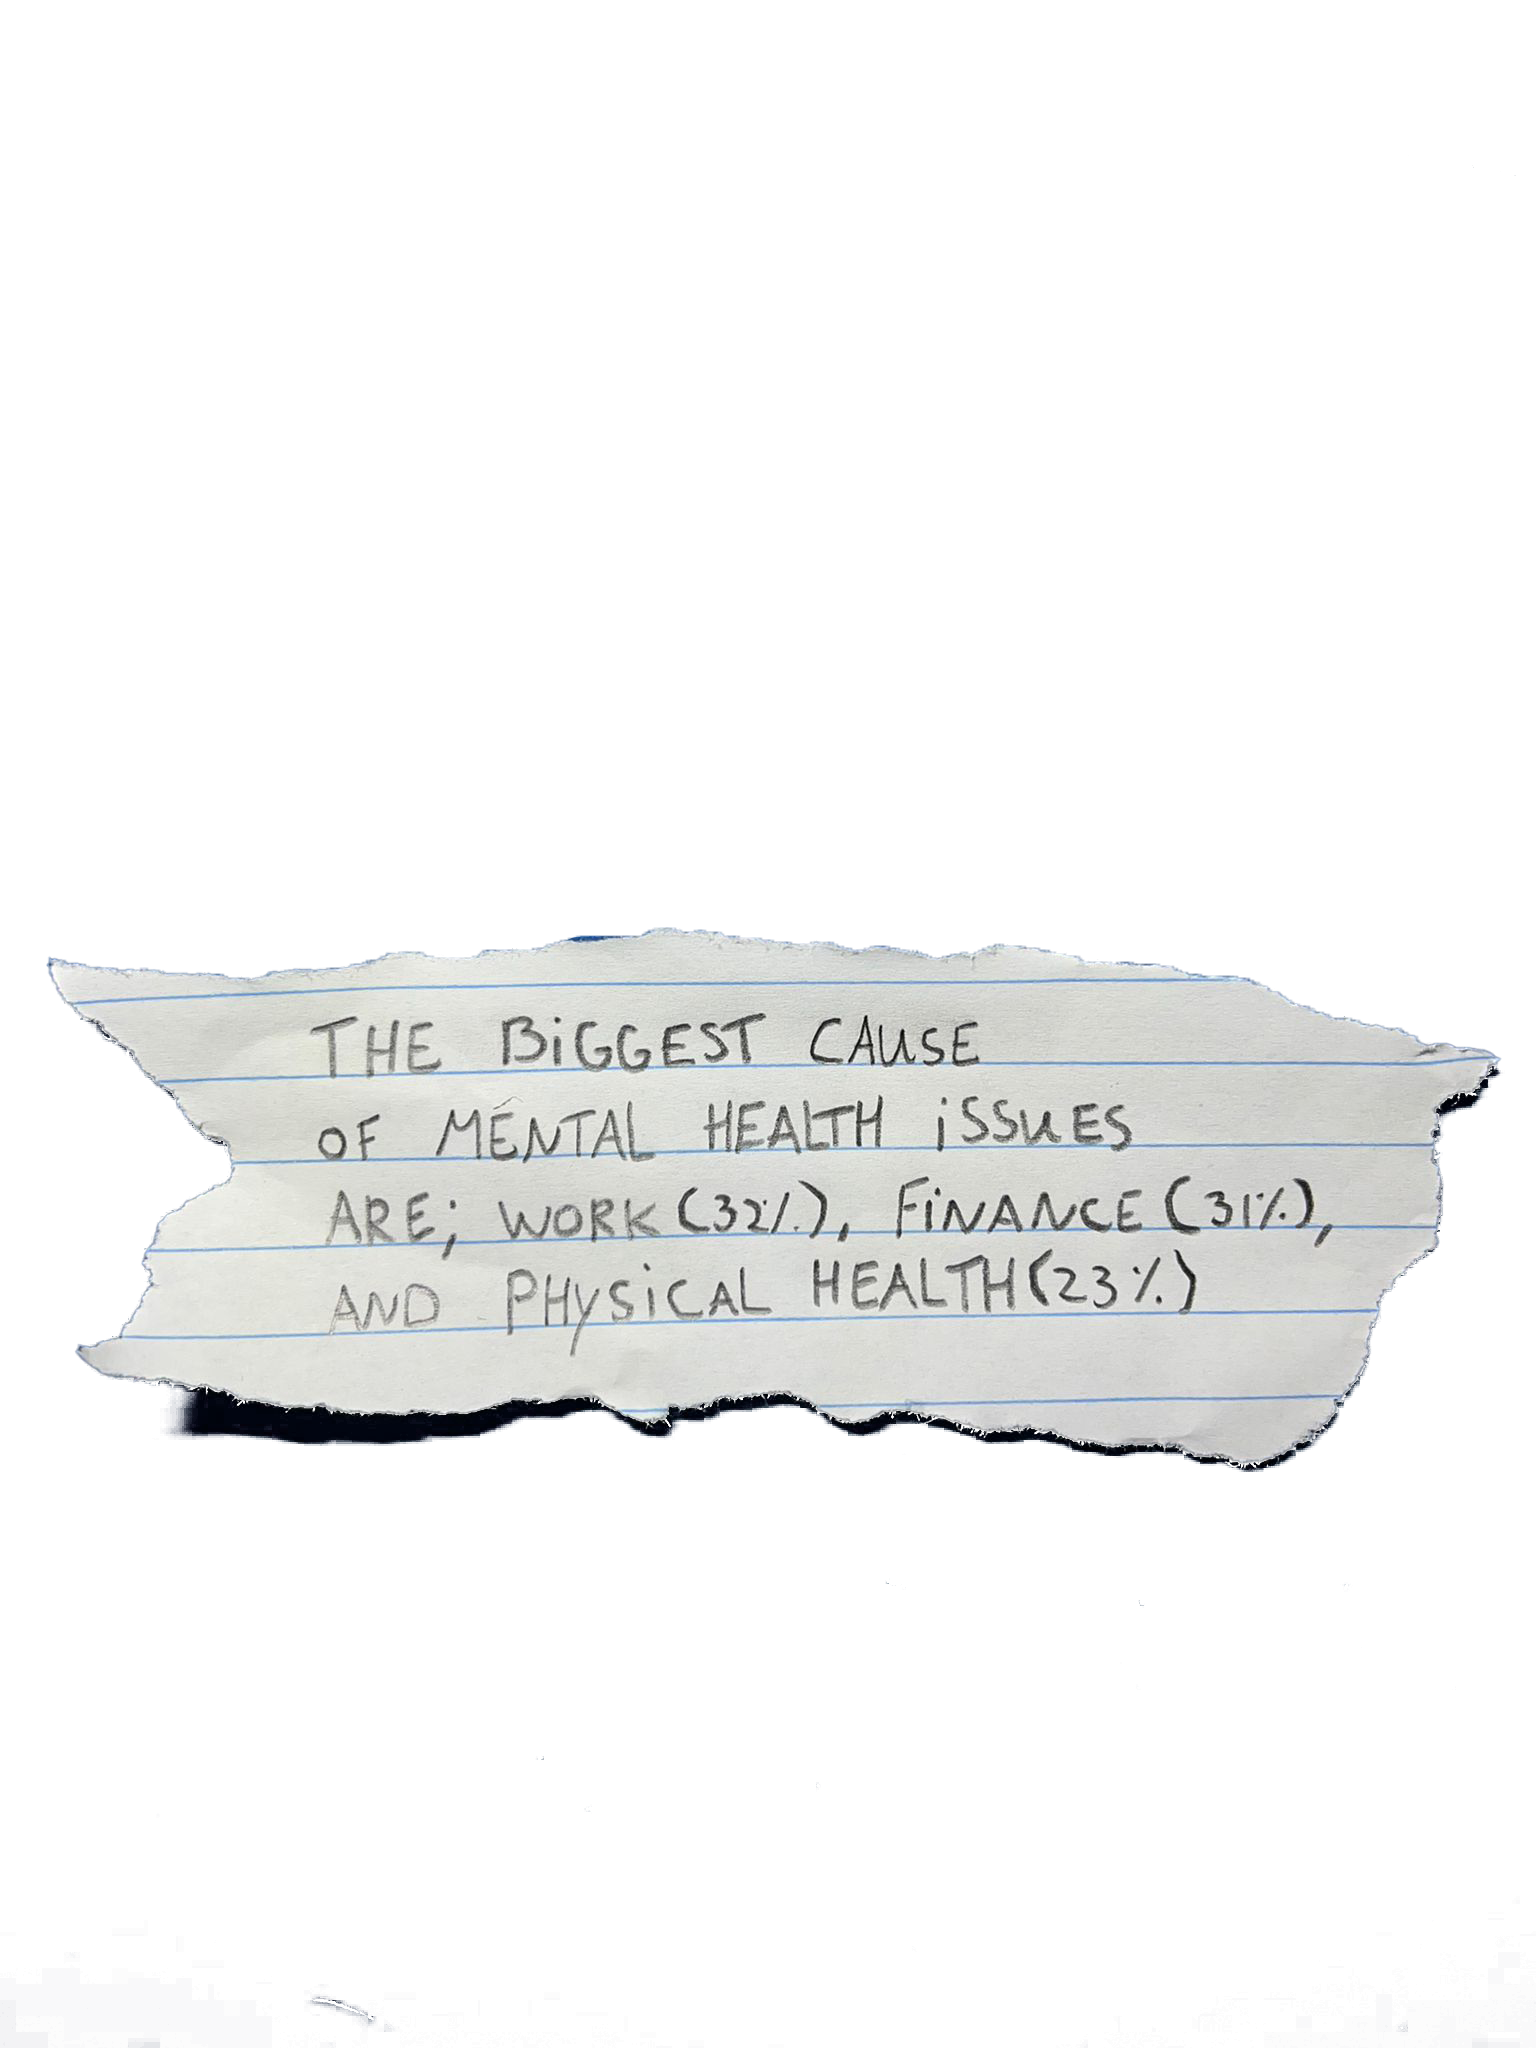 THE BiGGEST CAUSE
OF MENTAL HEALTH iSSUES
ARE; WORK (32%), FiNANCE (31%),
AND PHySiCAL HEALTH (23%)